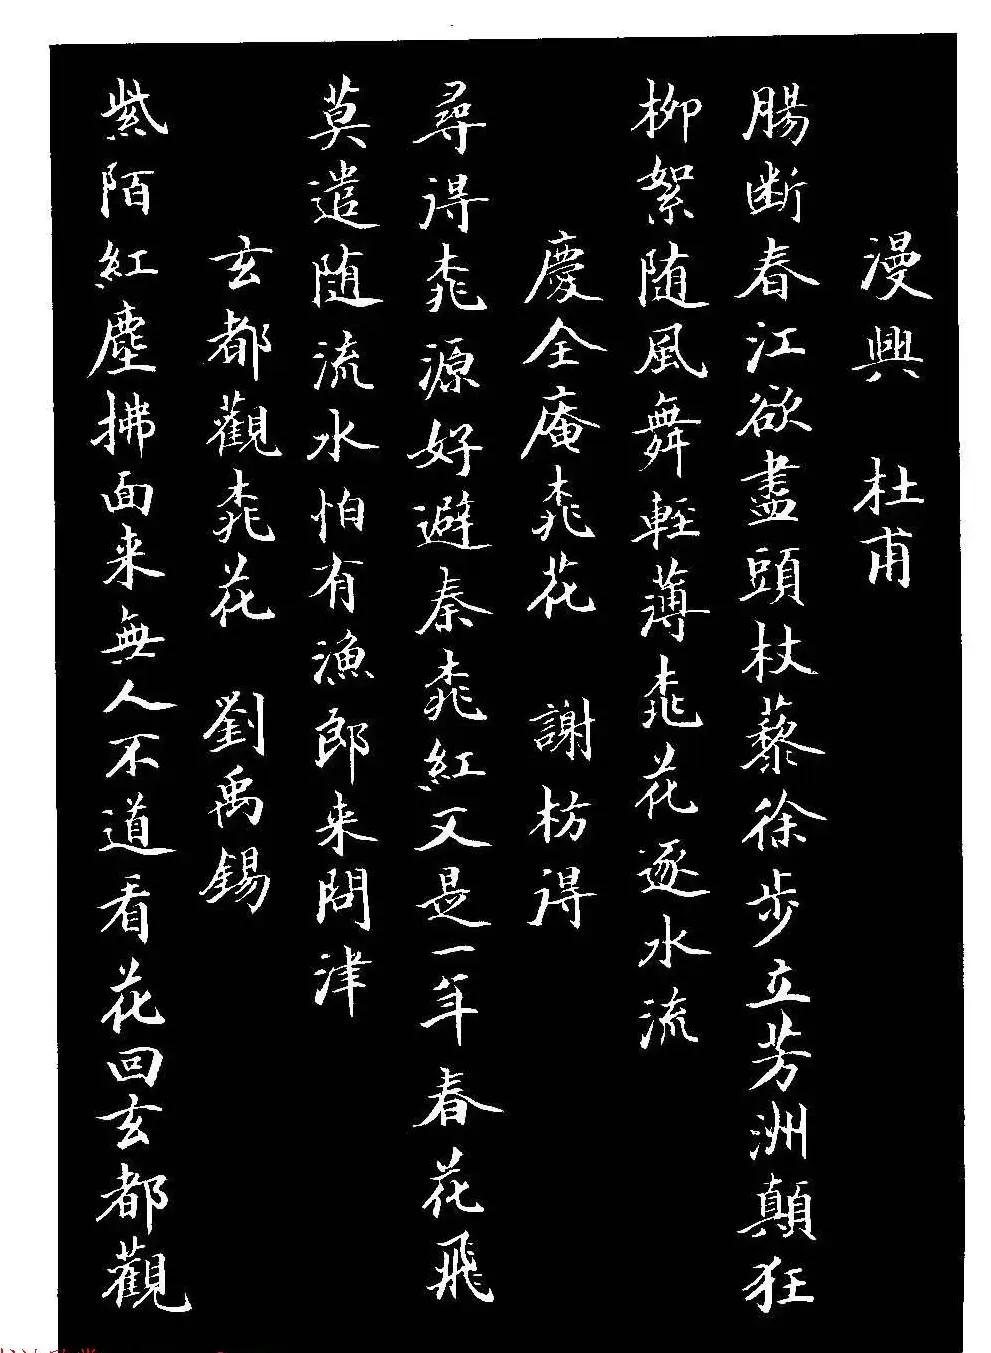 漫興 杜甫
腸断春江欲盡頭杖藜徐步立芳洲顛狂
柳絮随風舞輕薄桃花逐水流
慶全庵桃花 謝枋得
尋得桃源好避秦桃紅又是一年春花飛
莫遣随流水怕有漁郎来問津
玄都觀桃花 劉禹錫
紫陌紅塵拂面来無人不道看花回玄都觀